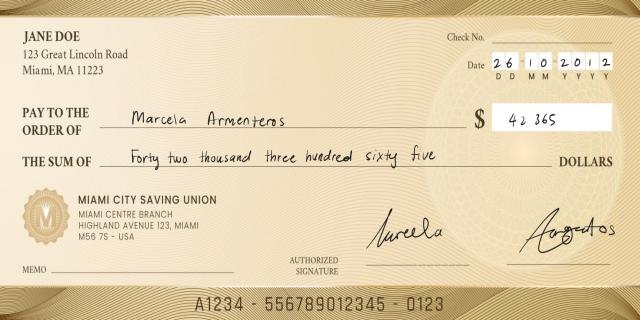 JANE DOE
123 Great Lincoln Road
Miami, MA 11223
Check No.
Date 26 10 2012
D D M M Y Y Y Y
PAY TO THE ORDER OF Marcela Armenteros
$ 42 365
THE SUM OF Forty two thousand three hundred sixty five DOLLARS
M
MIAMI CITY SAVING UNION
MIAMI CENTRE BRANCH
HIGHLAND AVENUE 123, MIAMI
M56 7S - USA
MEMO
AUTHORIZED SIGNATURE
A1234 - 556789012345 - 0123